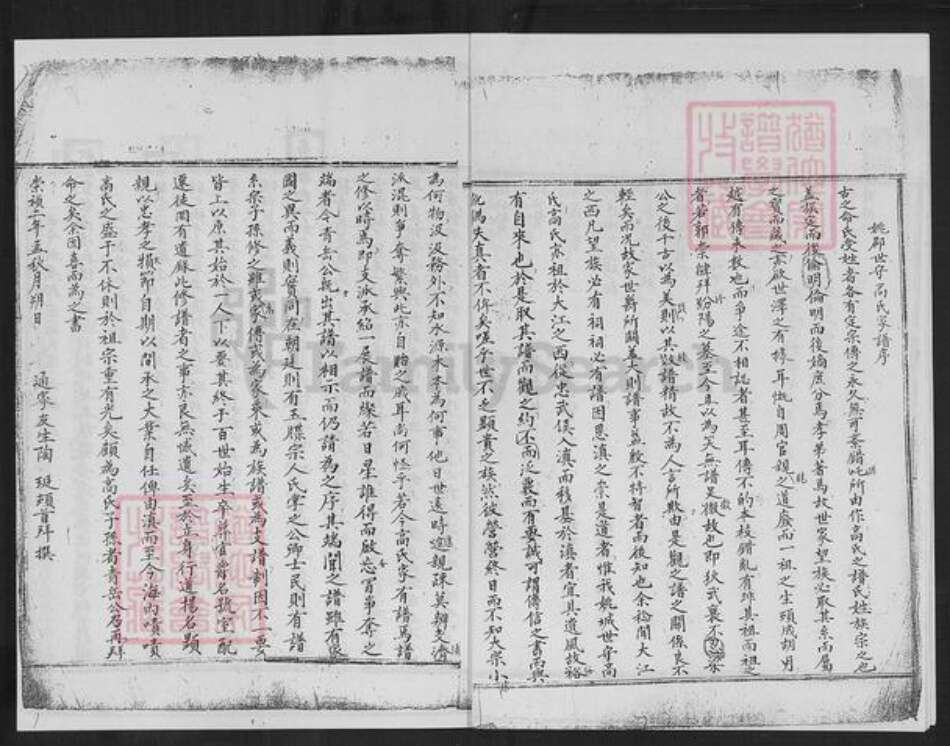 姚郡世守高氏家譜序
古之命氏受姓者各有定宗傳之永久無可紊錯此所由作高氏之譜氏姓族宗之也
蓋族定而後倫明倫明而後嫡庶分焉孝弟著焉故世家望族必取其系而屬
之譜而藏之崇啟世澤之有條耳慨自周官親之道廢而一祖之生頭成胡男
越有傳未数也而爭途不相認者甚至耳傳不的本校錯亂有非其祖而祖之
者若郭崇韜拜汾陽之墓至今且以為笑無譜足徵故也即狄武襄不
公之後千古以為美則以其以譜精故不為人言所欺由是觀之譜之關係良不
輕矣而况故家世爵所關至大則譜事益殷不待智者而後知也余稔聞大江
之西凡望族必有祠祠必有譜因思滇之崇是道者惟我姚城世守高
氏高氏系祖於大江之西從忠武侯入滇而積墓於滇者宜其道風故裕
有自來也於是取其譜而觀之約而不泛裏而有要誠可謂傳信之書而與
訛偽失真者不侔矣嗟乎世不乏顯貴之族然彼營營終日而不知大宗小
為何物汲汲務外不知水源木本為何事他日世遠時遠親疎莫辨支
派混則爭奪繁興此亦自貽之戚耳尚何怪乎若今高氏家有譜焉譜
之修以時焉即支派承紹一展譜而燦若日星誰得而啟忘冒弟奪之
端者今青岳公既出其譜以相示而仍請為之序其端聞之譜雖有
國之異而義則實同在朝廷則有玉牒宗人氏掌之公卿士民則有譜
系宗子孫修之雖或家傳或為家乘或為族譜或為支譜制因不一要
皆上以原其始於一人下以要其終于百世始生卒葬官爵名號室配
遷徙罔有遺蘇此修譜者之事亦良無憾遺矣至於立身行道揚名顯
親以忠孝之類節自期以聞承之大業自任俾由滇而至今海内嘖嘖
高氏之盛于不休則於祖宗重有光矣願為高氏子孫者青岳公乃再拜
命之矣余因喜而為之書
崇禎二年五秋月朔日
通家友生陶珽頓首拜撰
FamilySearch